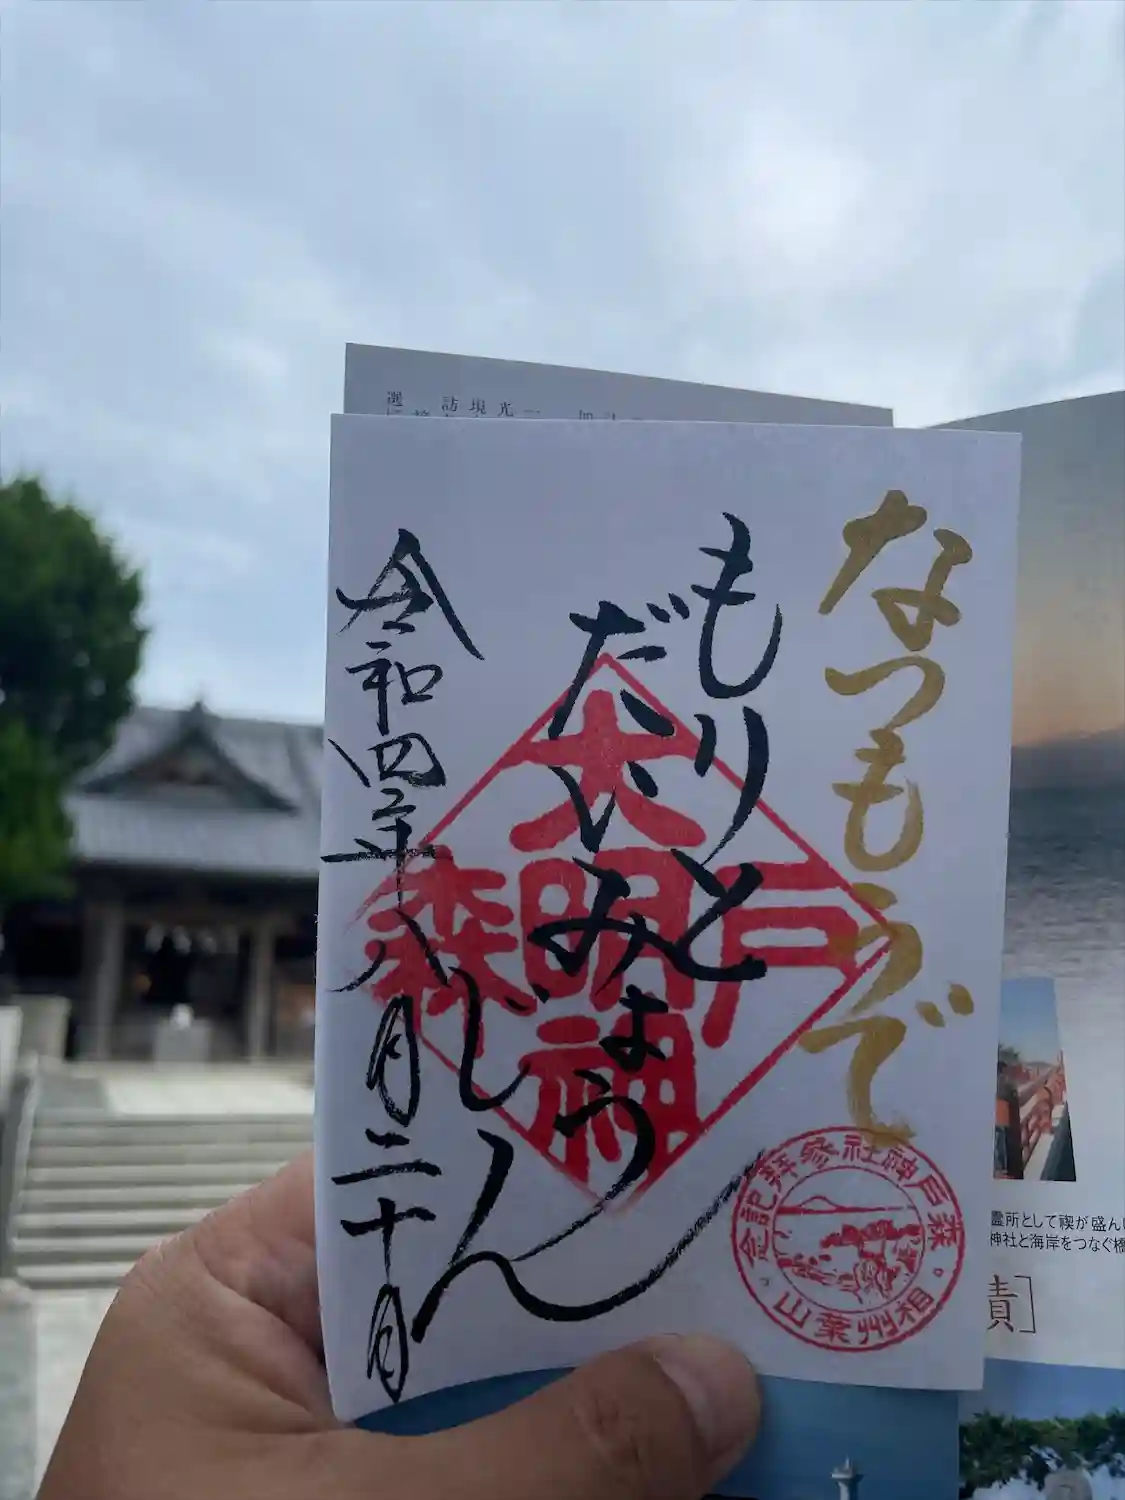 なつもうで
もりと
だいみょうじん
令和四年八月二十日
大明神
森戸
森戸神社参拝記念
相州葉山
霊所として禊が盛んに
神社と海岸をつなぐ橋
責]